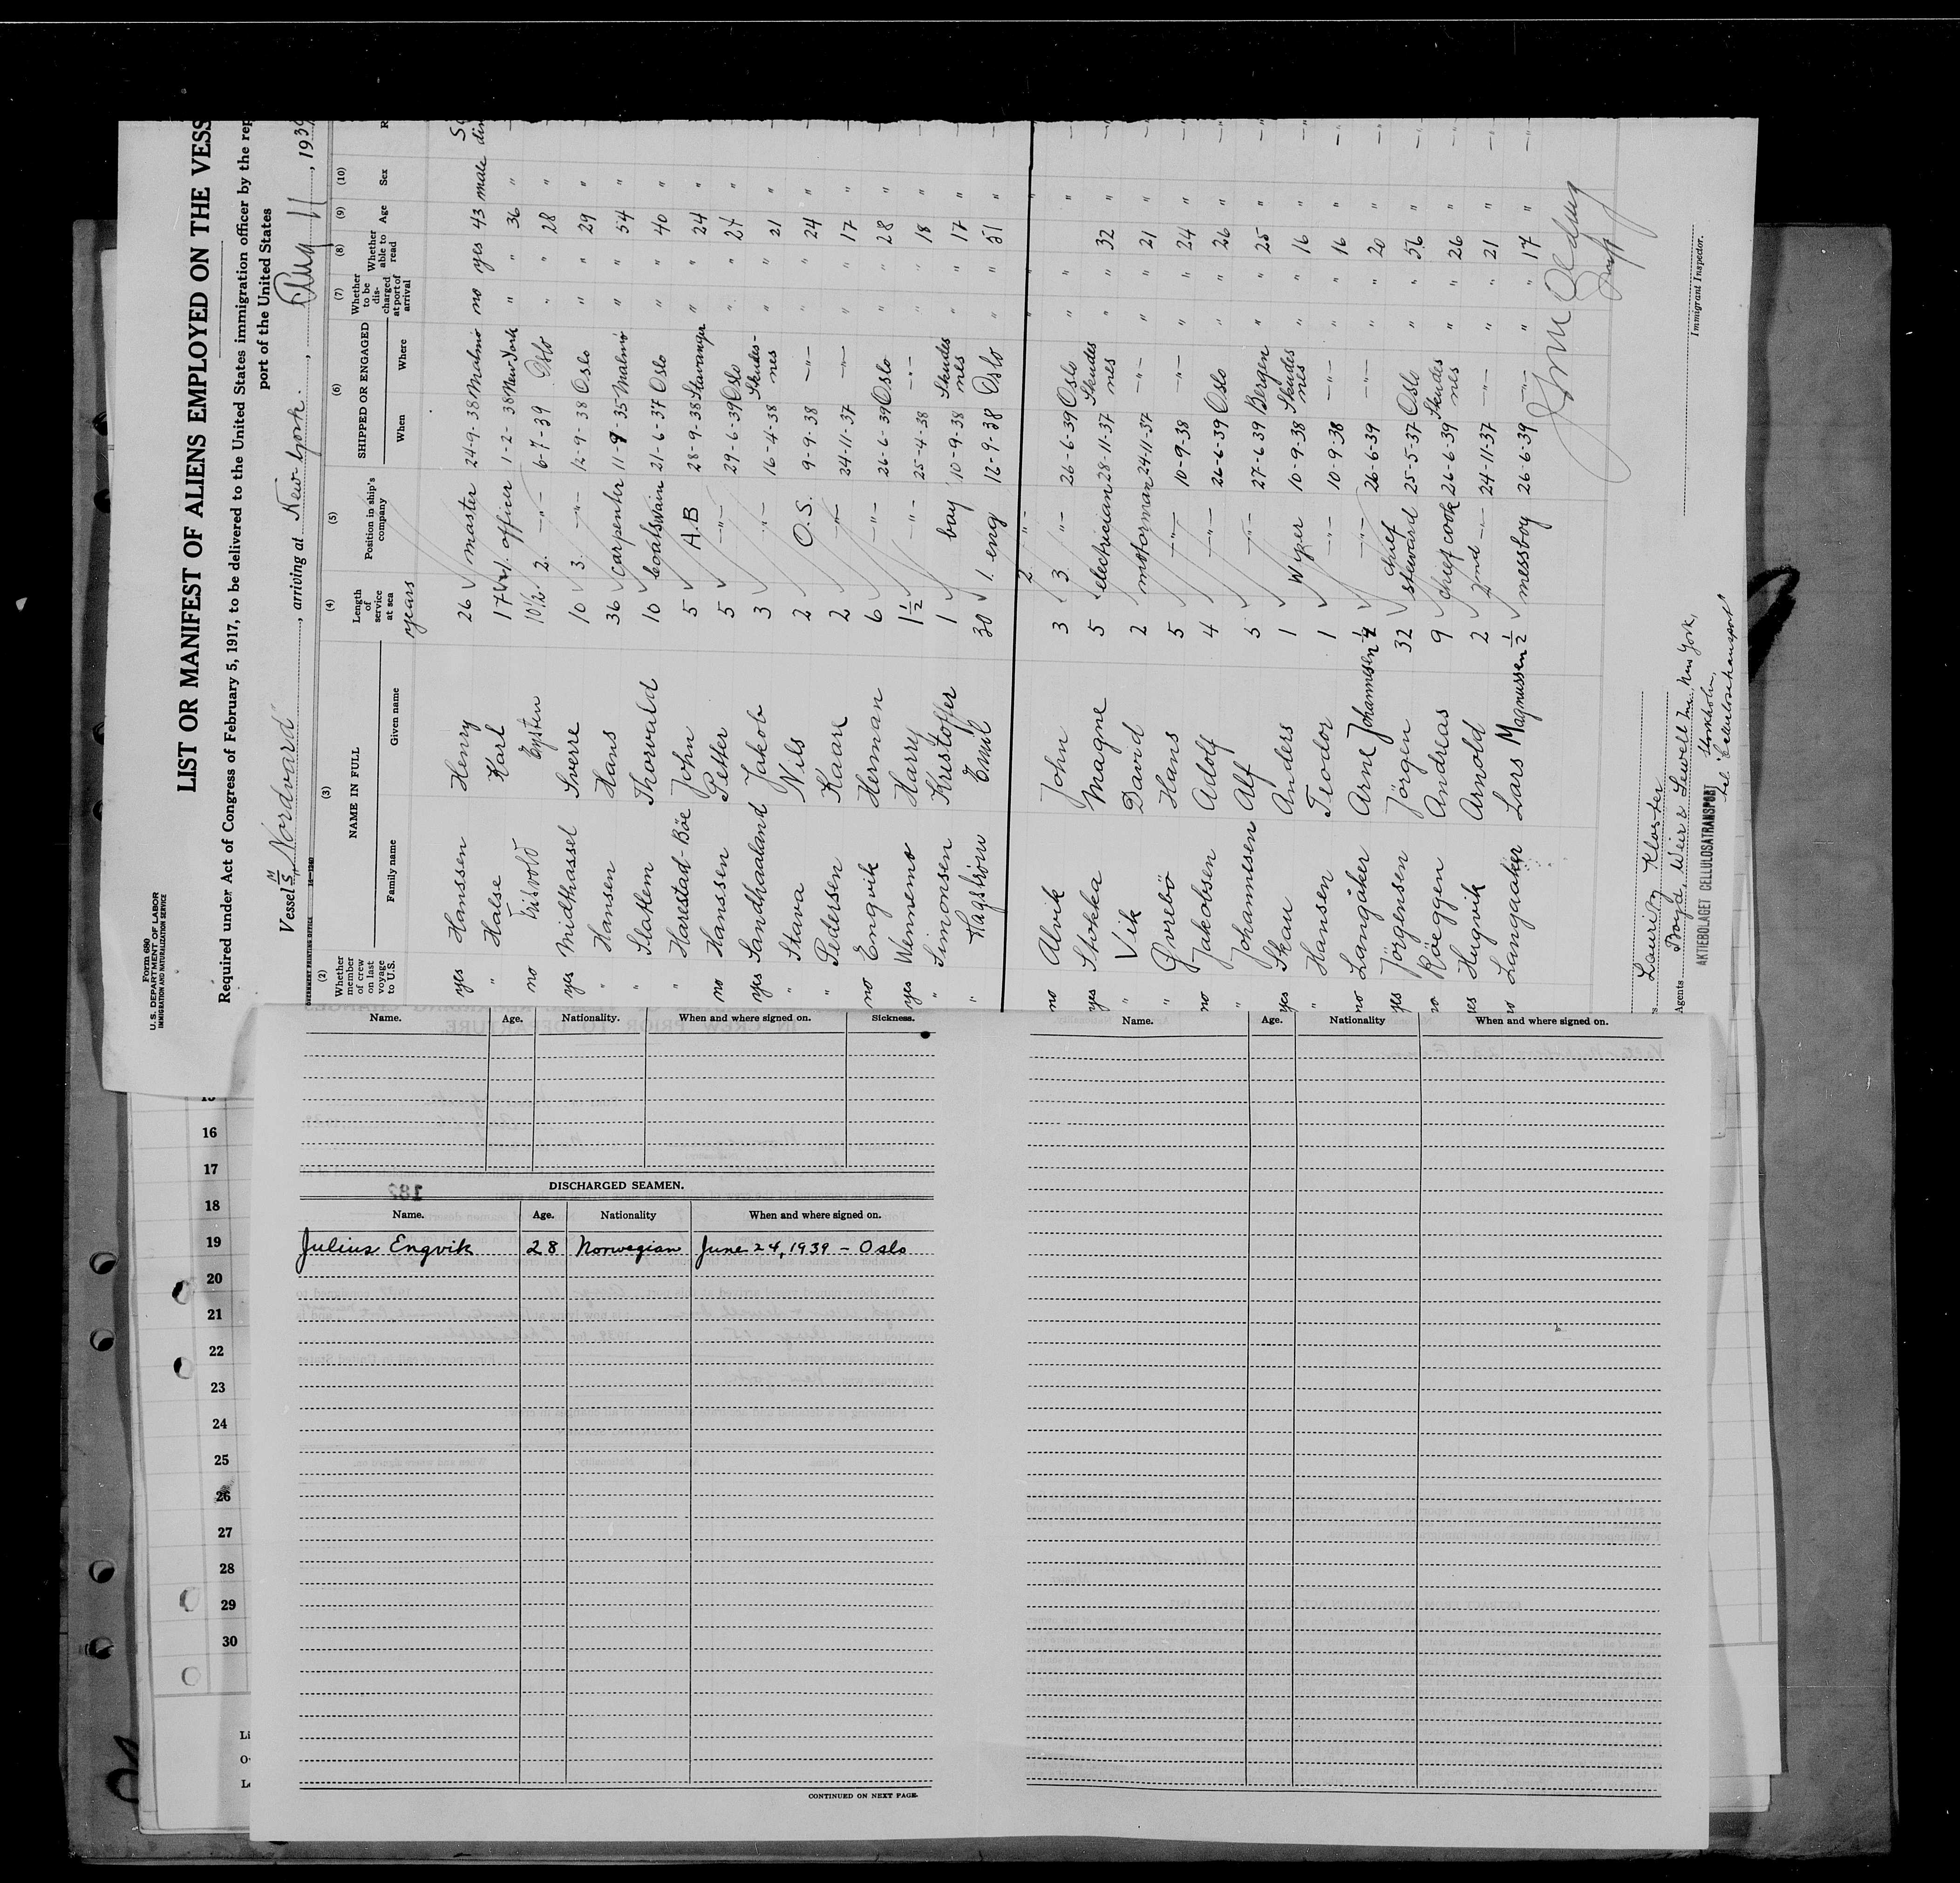 Form 680
U.S. DEPARTMENT OF LABOR
IMMIGRATION AND NATURALIZATION SERVICE
LIST OR MANIFEST OF ALIENS EMPLOYED ON THE VESS
Required under Act of Congress of February 5, 1917, to be delivered to the United States immigration officer by the rep
port of the United States
Vessel M/S "Nordvard", arriving at New-York, Aug 11, 1939
(2) (3) (4) (5) (6) (7) (8) (9) (10)
Whether member of crew on last voyage to U.S. NAME IN FULL Family name Given name Length of service at sea Position in ship's company SHIPPED OR ENGAGED When Where Whether to be discharged at port of arrival Whether able to read Age Sex R
years
yes Hanssen Henry 26 master 24-9-38 Malmö no yes 43 male
" Halse Karl 17 1. officer 1-2-38 New York " " 36 "
no Eysten 10½ 2. -"- 6-7-39 Oslo " " 28 "
yes Midthassel Sverre 10 3. -"- 12-9-38 Oslo " " 29 "
" Hansen Hans 36 carpenter 11-9-35 Malmö " " 54 "
" Slattem Thorvald 10 boatswain 21-6-37 Oslo " " 40 "
" Harestad-Böe John 5 A.B 28-9-38 Stavanger " " 24 "
no Hanssen Petter 5 -"- 29-6-39 Oslo " " 27 "
yes Sandhaaland Jakob 3 -"- 16-4-38 Skudesnes " " 21 "
" Stava Nils 2 O.S. 9-9-38 -"- " " 24 "
" Pedersen Kaare 2 -"- 24-11-37 -"- " " 17 "
no Engvik Herman 6 -"- 26-6-39 Oslo " " 28 "
yes Wennemo Harry 1½ -"- 25-4-38 -"- " " 18 "
" Simonsen Kristoffer 1 boy 10-9-38 Skudesnes " " 17 "
" Hagström Emil 30 1. eng 12-9-38 Oslo " " 51 "
2. -"-
no Alvik John 3 3. -"- 26-6-39 Oslo " " "
yes Stokka Magne 5 electrician 28-11-37 Skudesnes " " 32 "
" Vik David 2 motorman 24-11-37 -"- " " 21 "
" Qvrebö Hans 5 -"- 10-9-38 -"- " " 24 "
no Jakobsen Adolf 4 -"- 26-6-39 Oslo " " 26 "
" Johannesen Alf 5 -"- 27-6-39 Bergen " " 25 "
yes Skau Anders 1 Wiper 10-9-38 Skudesnes " " 16 "
" Hansen Teodor 1 -"- 10-9-38 -"- " " 16 "
no Langåker Arne Johannesen ½ -"- 26-6-39 -"- " " 20 "
yes Jörgensen Jörgen 32 chief steward 25-5-37 Oslo " " 56 "
no Röeggen Andreas 9 chief cook 26-6-39 Skudesnes " " 26 "
yes Hugvik Arnold 2 2nd -"- 24-11-37 -"- " " 21 "
no Langaaker Lars Magnussen ½ messboy 26-6-39 -"- " " 17 "
Insp
Immigrant Inspector.
Lauritz Kloster
Agents Boyd, Weir & Sewell Inc. New York,
AKTIEBOLAGET CELLULOSATRANSPORT Stockholm,
tel. "Cellulosetransport"
Name. Age. Nationality. When and where signed on. Sickness.
DISCHARGED SEAMEN.
Name. Age. Nationality When and where signed on.
Julius Engvik 28 Norwegian June 24, 1939 - Oslo
CONTINUED ON NEXT PAGE.
Name. Age. Nationality When and where signed on.
16
17
18
19
20
21
22
23
24
25
26
27
28
29
30